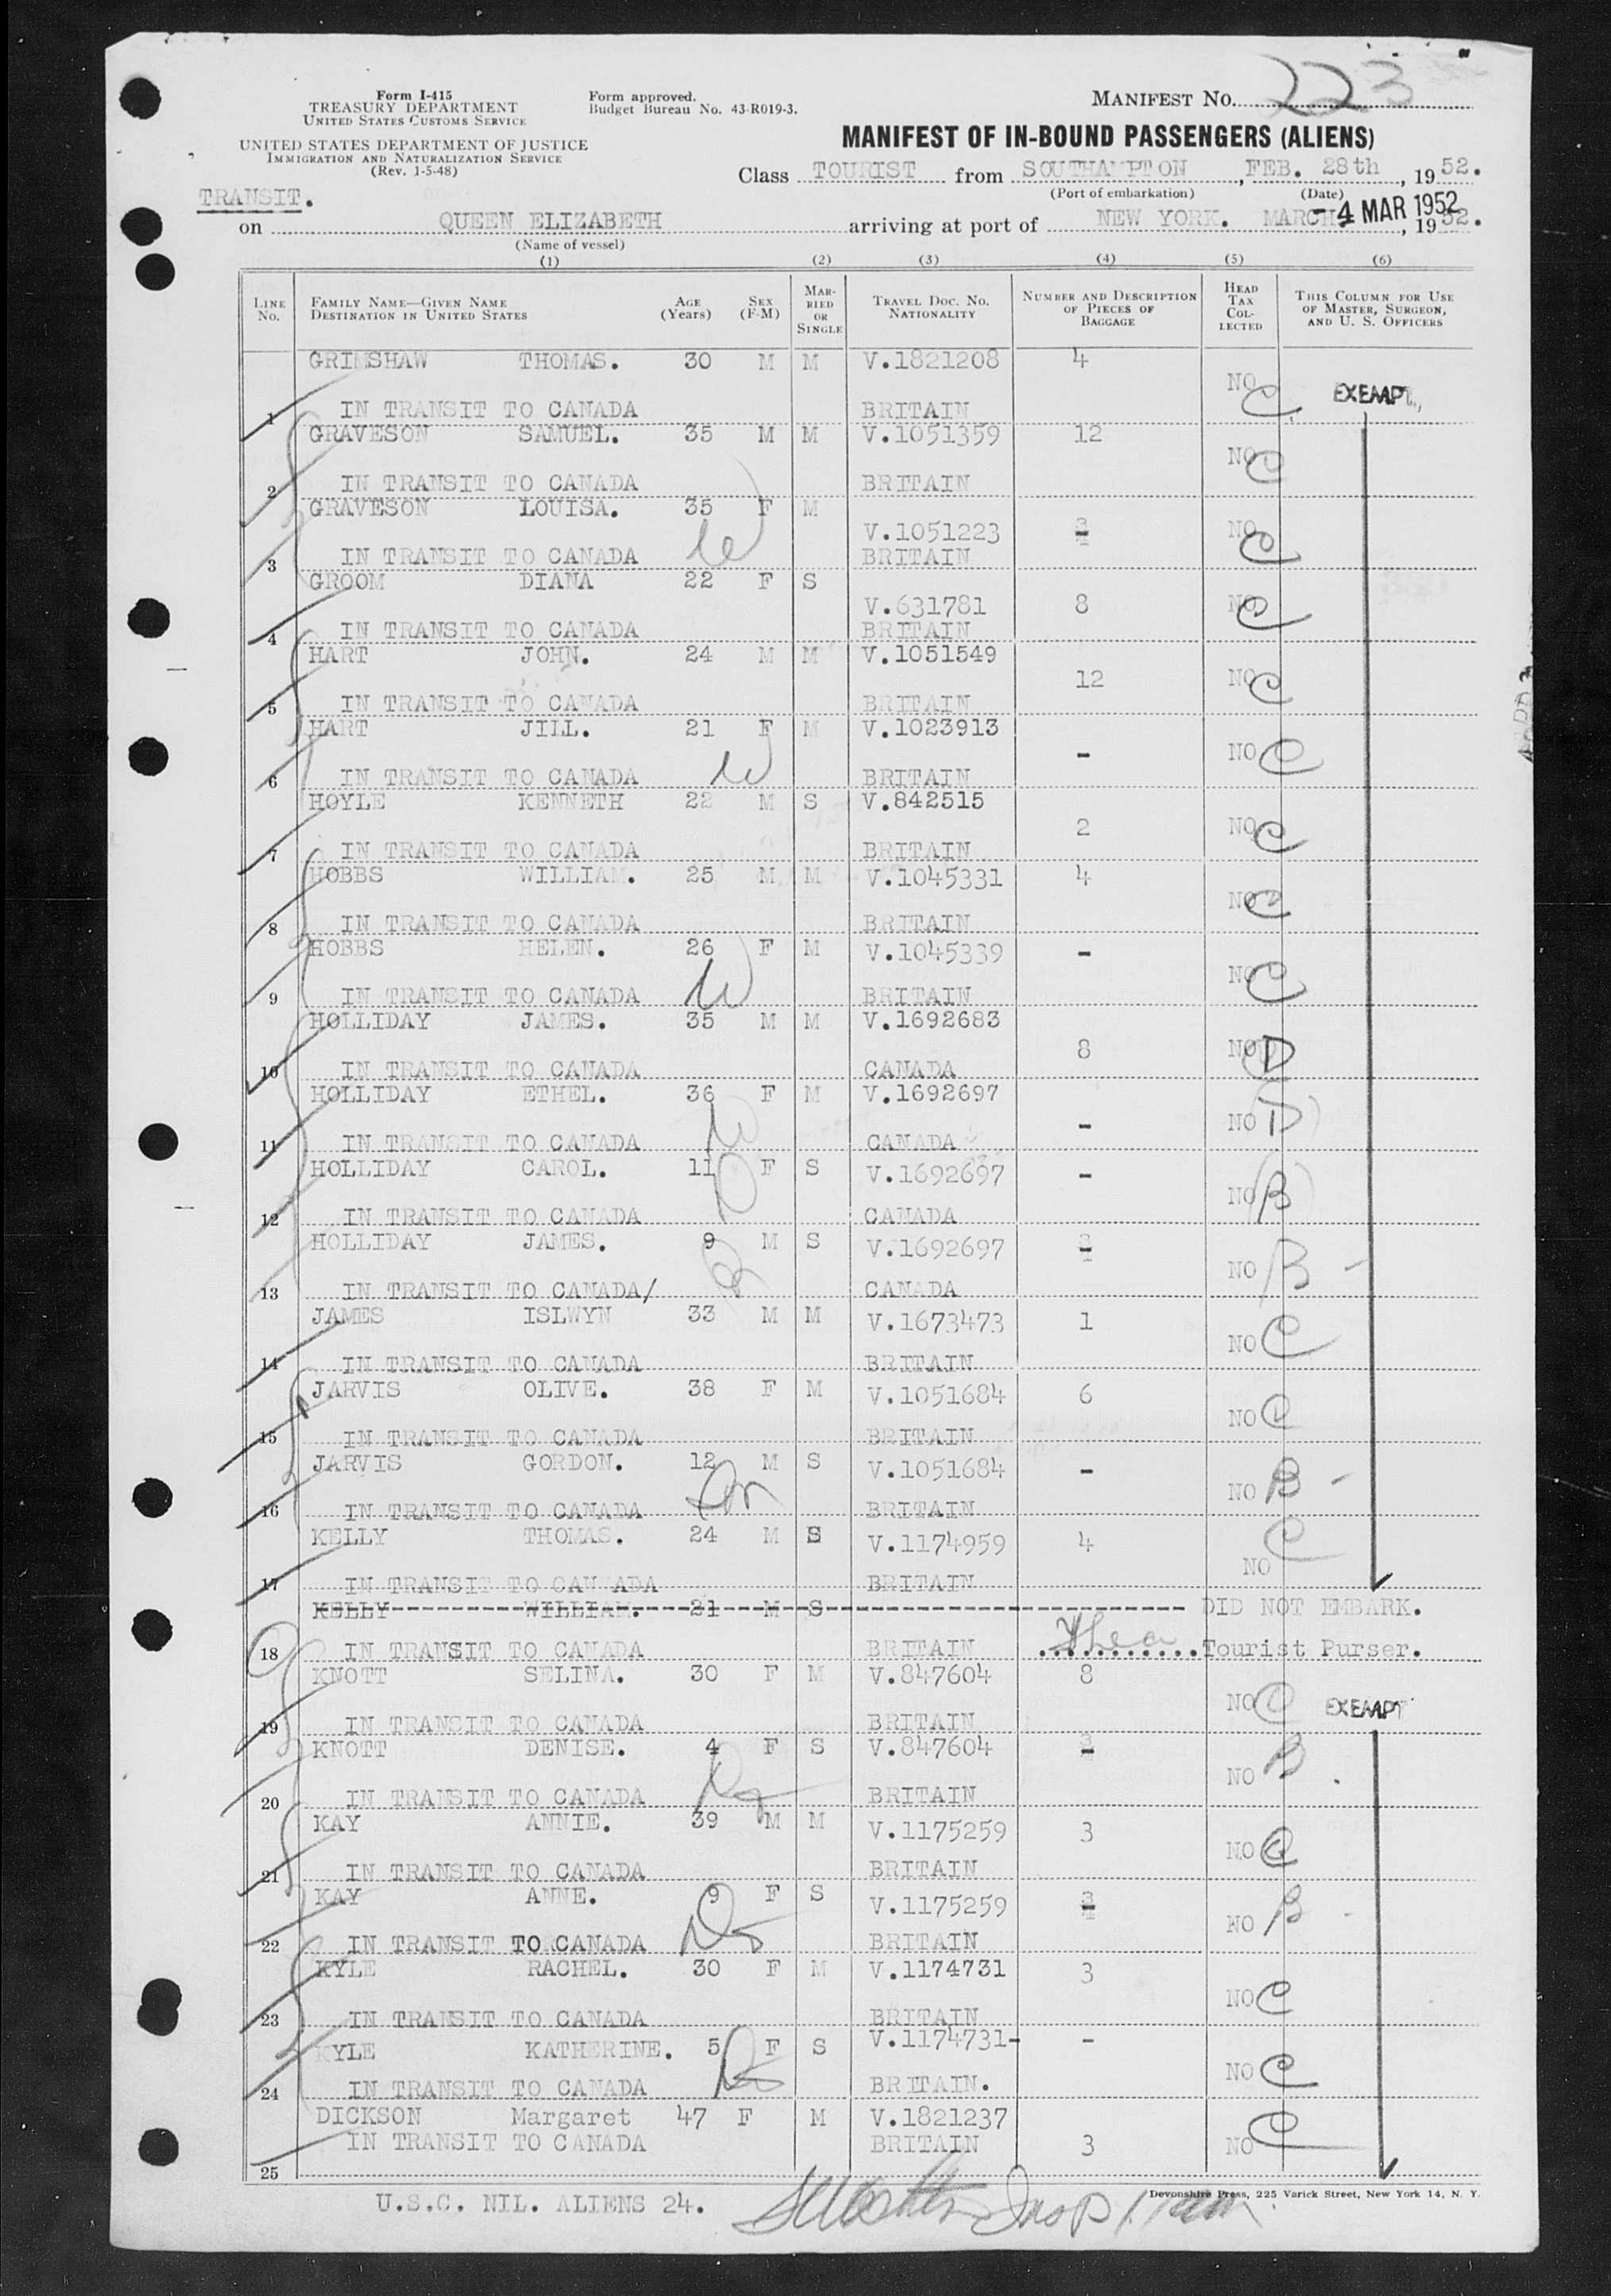 Form I-415
TREASURY DEPARTMENT
UNITED STATES CUSTOMS SERVICE
UNITED STATES DEPARTMENT OF JUSTICE
IMMIGRATION AND NATURALIZATION SERVICE
(Rev. 1-5-48)
Form approved.
Budget Bureau No. 43-R019-3.
MANIFEST NO. 223
MANIFEST OF IN-BOUND PASSENGERS (ALIENS)
Class TOURIST from SOUTHAMPTON, FEB. 28th, 1952.
(Port of embarkation) (Date)
TRANSIT.
on QUEEN ELIZABETH arriving at port of NEW YORK. MARCH -4 MAR 1952, 1952.
(Name of vessel)
(1) (2) (3) (4) (5) (6)
LINE NO. FAMILY NAME—GIVEN NAME DESTINATION IN UNITED STATES AGE (Years) SEX (F-M) MARRIED OR SINGLE TRAVEL DOC. NO. NATIONALITY NUMBER AND DESCRIPTION OF PIECES OF BAGGAGE HEAD TAX COLLECTED THIS COLUMN FOR USE OF MASTER, SURGEON, AND U. S. OFFICERS
GRIMSHAW THOMAS. 30 M M V.1821208 4
NO C EXEMPT
1 IN TRANSIT TO CANADA BRITAIN
GRAVESON SAMUEL. 35 M M V.1051359 12
NO C
2 IN TRANSIT TO CANADA BRITAIN
GRAVESON LOUISA. 35 F M
V.1051223 - NO C
3 IN TRANSIT TO CANADA W BRITAIN
GROOM DIANA 22 F S
V.631781 8 NO C
4 IN TRANSIT TO CANADA BRITAIN
HART JOHN. 24 M M V.1051549
12 NO C
5 IN TRANSIT TO CANADA BRITAIN
HART JILL. 21 F M V.1023913
- NO C
6 IN TRANSIT TO CANADA W BRITAIN
HOYLE KENNETH 22 M S V.842515
2 NO C
7 IN TRANSIT TO CANADA BRITAIN
HOBBS WILLIAM. 25 M M V.1045331 4
NO C
8 IN TRANSIT TO CANADA BRITAIN
HOBBS HELEN. 26 F M V.1045339 -
NO C
9 IN TRANSIT TO CANADA W BRITAIN
HOLLIDAY JAMES. 35 M M V.1692683
8 NO D
10 IN TRANSIT TO CANADA CANADA
HOLLIDAY ETHEL. 36 F M V.1692697
- NO D
11 IN TRANSIT TO CANADA W CANADA
HOLLIDAY CAROL. 11 F S V.1692697 -
NO B
12 IN TRANSIT TO CANADA CANADA
HOLLIDAY JAMES. 9 M S V.1692697 -
NO B -
13 IN TRANSIT TO CANADA/ CANADA
JAMES ISLWYN 33 M M V.1673473 1
NO C
14 IN TRANSIT TO CANADA BRITAIN
JARVIS OLIVE. 38 F M V.1051684 6
NO C
15 IN TRANSIT TO CANADA BRITAIN
JARVIS GORDON. 12 M S V.1051684 -
NO B -
16 IN TRANSIT TO CANADA BRITAIN
KELLY THOMAS. 24 M S V.1174959 4
NO C
17 IN TRANSIT TO CAN ADA BRITAIN
KELLY WILLIAM. 21 M S DID NOT EMBARK.
18 IN TRANSIT TO CANADA BRITAIN ............Tourist Purser.
KNOTT SELINA. 30 F M V.847604 8
NO C EXEMPT
19 IN TRANSIT TO CANADA BRITAIN
KNOTT DENISE. 4 F S V.847604 -
NO B
20 IN TRANSIT TO CANADA BRITAIN
KAY ANNIE. 39 M M V.1175259 3
NO C
21 IN TRANSIT TO CANADA BRITAIN
KAY ANNE. 9 F S V.1175259 -
NO B
22 IN TRANSIT TO CANADA BRITAIN
KYLE RACHEL. 30 F M V.1174731 3
NO C
23 IN TRANSIT TO CANADA BRITAIN
KYLE KATHERINE. 5 F S V.1174731- -
NO C
24 IN TRANSIT TO CANADA BRITAIN.
DICKSON Margaret 47 F M V.1821237
IN TRANSIT TO CANADA BRITAIN 3 NO C
25
Devonshire Press, 225 Varick Street, New York 14, N. Y.
U.S.C. NIL. ALIENS 24.